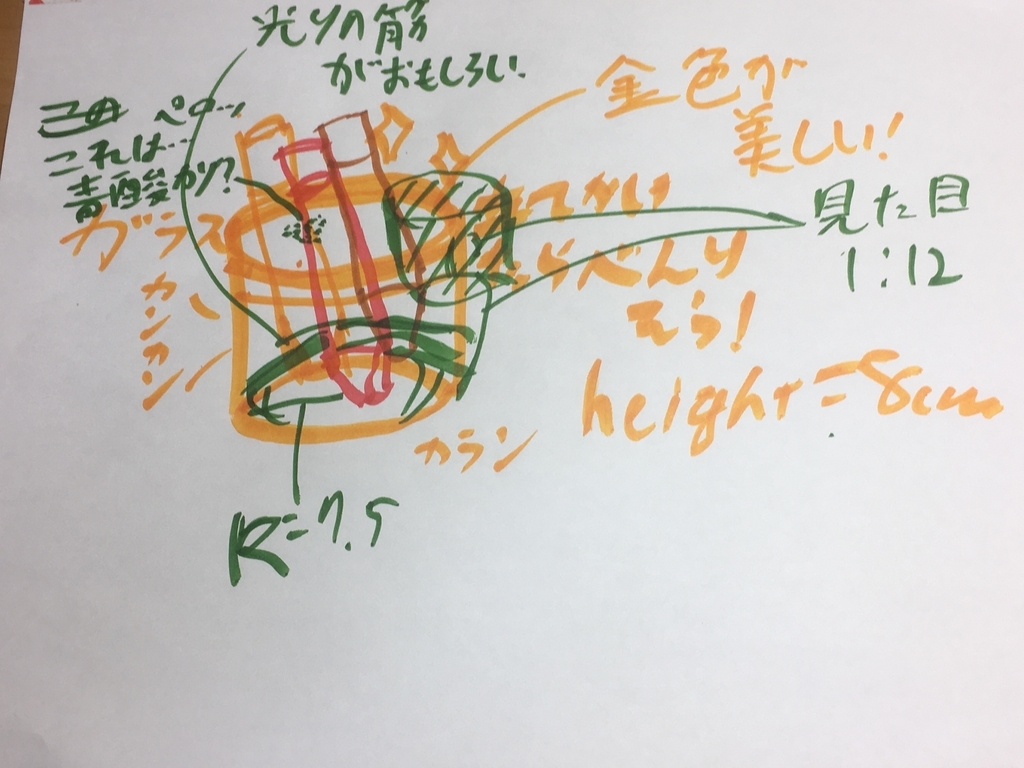 光りの筋
がおもしろい
金色が
美しい!
ペロッ
これは…
青酸カリ?
ガラス
カンカン
見た目
1:12
べんり
そう!
height=8cm
カラン
R=7.5